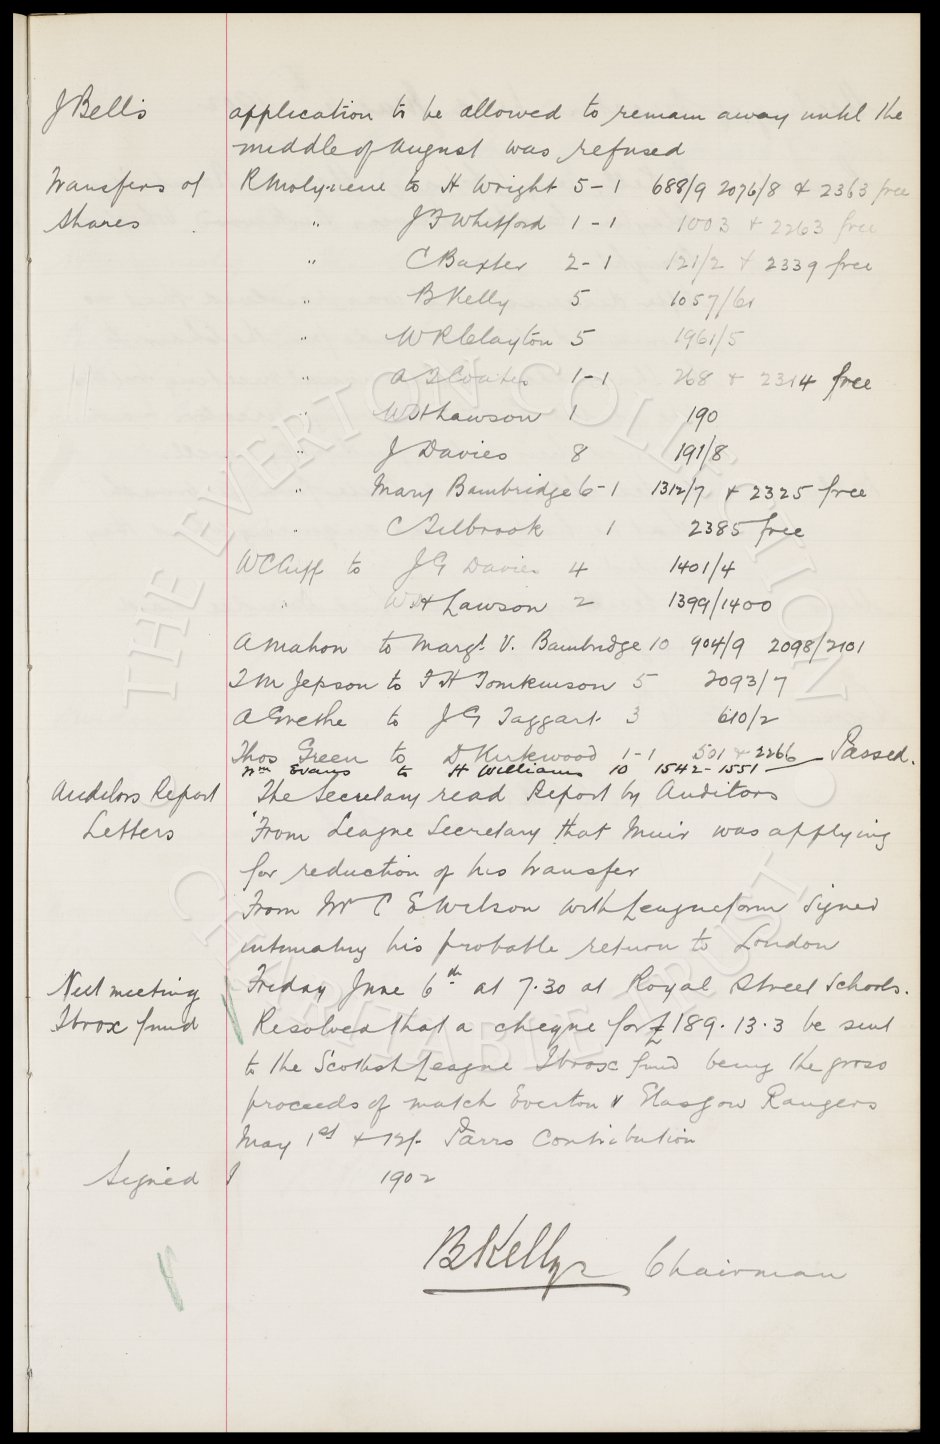 J Bell's application to be allowed to remain away until the
middle of August was refused
Transfers of R Molyneux to H Wright 5-1 688/9 2076/8 & 2363 free
Shares " J F Whitford 1-1 1003 & 2263 free
" C Baxter 2-1 121/2 & 2339 free
" B Kelly 5 1057/61
" W R Clayton 5 1961/5
" A T Coates 1-1 268 & 2314 free
" W H Lawson 1 190
" J Davies 8 191/8
" Mary Bainbridge 6-1 1312/7 & 2325 free
" C Tilbrook 1 2385 free
W C Cuff to J G Davies 4 1401/4
" W H Lawson 2 1399/1400
A Mahon to Margt. V. Bainbridge 10 904/9 2098/2101
T M Jepson to F H Tomkinson 5 2093/7
A Grethe to J G Taggart 3 610/2
Thos Green to D Kirkwood 1-1 501 & 2266 Passed.
Wm Evans to H Williams 10 1542-1551
Auditors Report The Secretary read Report by Auditors
Letters From League Secretary that Muir was applying
for reduction of his transfer
From Mr C E Wilson with League form signed
intimating his probable return to London
Next meeting Friday June 6th at 7.30 at Royal Street Schools.
Ibrox fund Resolved that a cheque for £189.13.3 be sent
to the Scottish League Ibrox fund being the gross
proceeds of match Everton v Glasgow Rangers
May 1st & 12/- Parrs Contribution
Signed 1902
B Kelly Chairman
THE EVERTON COLLECTION
CHARITABLE TRUST